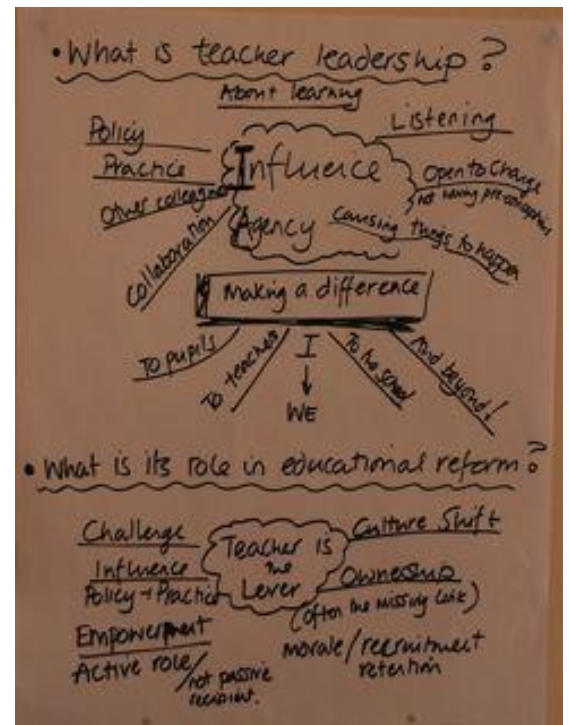 • What is teacher leadership?
About learning
Policy
Practice
Other colleagues
Collaboration
Influence
Agency
Listening
Open to Change
not having pre-conceptions
Causing things to happen
Making a difference
To pupils
To teachers
I
WE
To the school
And beyond!
• What is its role in educational reform?
Challenge
Influence
Policy → Practice
Empowerment
Active role/
not passive
recipient.
Teacher is
the
Lever
Culture Shift
Ownership
(often the missing link)
morale/recruitment
retention